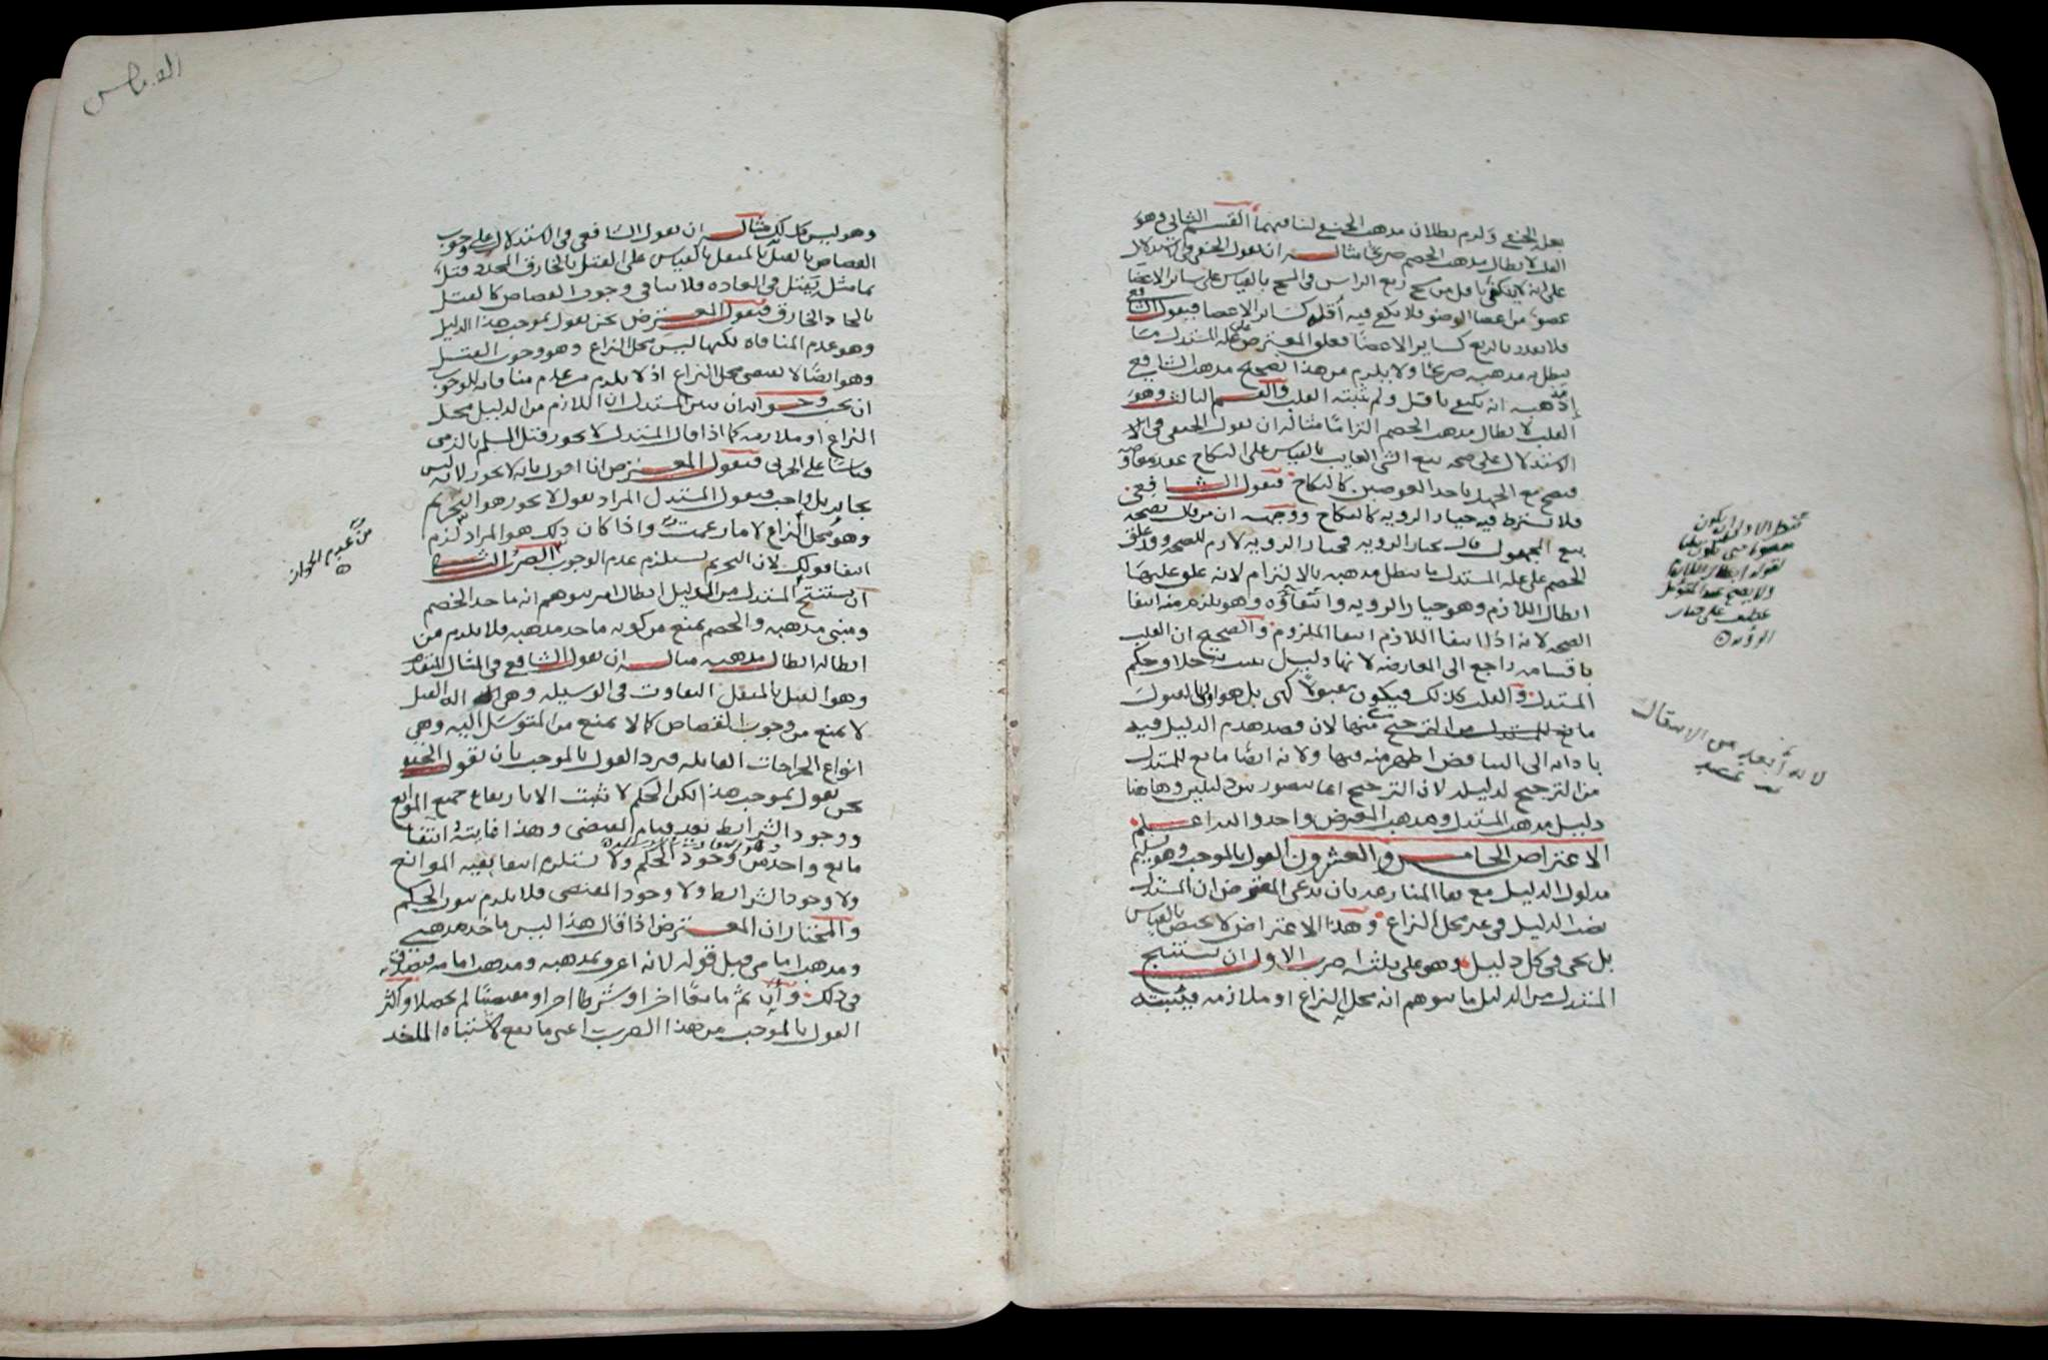 بعلة الحنفي ولزم بطلان مذهب الحنفي لتنافيهما القسم الثاني وهو
القلب لابطال مذهب الخصم صريحا مثاله ان يقول الحنفي في الاستدلال
على انه لا يكتفي باقل من مسح ربع الراس في المسح بالقياس على سائر الاعضا
عضو من اعضا الوضو فلا يكفي فيه اقله كسائر الاعضا فيقول الشافعي
فلا يقدر بالربع كسائر الاعضا فعلق المعترض على علة المستدل ما
يبطل به مذهبه صريحا ولا يلزم من هذا تصحيح مذهب الشافعي
إذ مذهبه انه يكفي ما قل ولم يثبته القلب والقسم الثالث وهو
القلب لابطال مذهب الخصم التزاما مثاله ان يقول الحنفي في
الاستدلال على صحة بيع الشي الغايب بالقياس على النكاح عقد معاوضة
فيصح مع الجهل باحد العوضين كالنكاح فيقول الشافعي
فلا تشترط فيه خيار الروية كالنكاح ووجهه ان من قال بصحة
بيع المجهول قال بخيار الروية فخيار الروية لازم للصحة وقد علق
الخصم على علة المستدل ما يبطل مذهبه بالالتزام لانه علق عليها
ابطال اللازم وهو خيار الروية وانتفاؤه وهو يلزم منه انتفا
الصحة لانه اذا انتفا اللازم انتفا الملزوم والصحيح ان القلب
باقسامه راجع الى المعارضة لانها دليل يثبت به خلاف حكم
المستدل والقلب كذلك فيكون مقبولا كهي بل هو اولى بالقبول
منها لان قصد هدم الدليل فيه
بادائه الى التناقض اظهر منه فيها ولانه ايضا مانع للمستدل
من الترجيح لدليله لان الترجيح انما يتصور بين دليلين وهاهنا
دليل مذهب المستدل ومذهب المعترض واحد والله اعلم
الاعتراض الخامس والعشرون القول بالموجب وهو تسليم
مدلول الدليل مع بقا المنازعة بان يدعي المعترض ان المستدل
نصب الدليل في غير محل النزاع وهذا الاعتراض لا يختص بالقياس
بل يجي في كل دليل وهو على ثلثة اضرب الاول ان يستنتج
المستدل من الدليل ما يتوهم انه محل النزاع او ملازمه فيثبته
لانه أبعد من الانتقال
وهو ليس كذلك مثاله ان يقول الشافعي في الاستدلال على وجوب
القصاص بالقتل بالمثقل بالقياس على القتل بالخارق المحدد قتل
بما مثله يقتل في العادة فلا ينافي وجوب القصاص كالقتل
بالحاد الخارق فيقول المعترض نحن نقول بموجب هذا الدليل
وهو عدم المنافاة لكنها ليس محل النزاع وهو وجوب القتل
وهو ايضا لا يقتضي محل النزاع اذ لا يلزم من عدم منافاته للوجوب
ان يجب وجوابه ان يبين المستدل ان اللازم من الدليل محل
النزاع او ملازمه كما اذا قال المستدل لا يجوز قتل المسلم بالذمي
قياسا على الحربي فيقول المعترض انا اقول بانه لا يجوز لانه ليس
بجايز بل واجب فيقول المستدل المراد بقول لا يجوز هو التحريم
وهو محل النزاع لا ما زعمت واذا كان ذلك هو المراد لزم
انتفا قولك لان التحريم يستلزم عدم الوجوب الضرب الثاني
أن يستنتج المستدل من الدليل ابطال امر يتوهم انه ماخذ الخصم
ومبنى مذهبه والخصم يمنع من كونه ماخذ مذهبه فلا يلزم من
ابطاله ابطال مذهبه مثاله ان يقول الشافعي في المثال المتقدم
وهو القتل بالمثقل التفاوت في الوسيلة وهي اله القتل
لا يمنع من وجوب القصاص كما لا يمنع من المتوسل اليه وهي
انواع الجراحات القاتلة فيرد القول بالموجب بأن تقول الحنفي
نحن نقول بموجب هذا لكن الحكم لا يثبت الا بارتفاع جميع الموانع
ووجود الشرايط بعد قيام المقتضي وهذا غايته انتفا
مانع واحد من وجود الحكم ولا يستلزم انتفا بقية الموانع
ولا وجود الشرايط ولا وجود المقتضي فلا يلزم ثبوت الحكم
والمختار ان المعترض اذا قال هذا ليس ماخذ مذهبي
ومذهب امامي قبل قوله لانه اعرف بمذهبه ومذهب امامه فيصدق
في ذلك وأن ثم مانعا اخر او شرطا اخر او مقتضيا لم يحصل واكثر
القول بالموجب من هذا الضرب اعني ما يقع لاشتباه الماخذ
من عدم الجواز